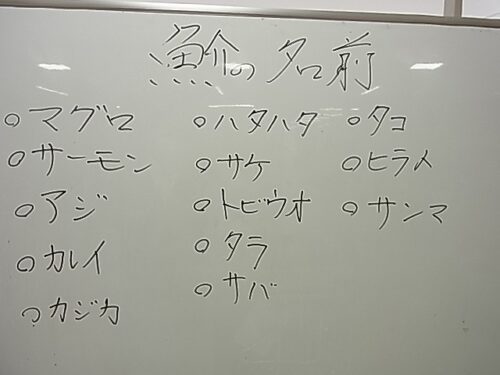 魚介の名前
○マグロ
○サーモン
○アジ
○カレイ
○カジカ
○ハタハタ
○サケ
○トビウオ
○タラ
○サバ
○タコ
○ヒラメ
○サンマ